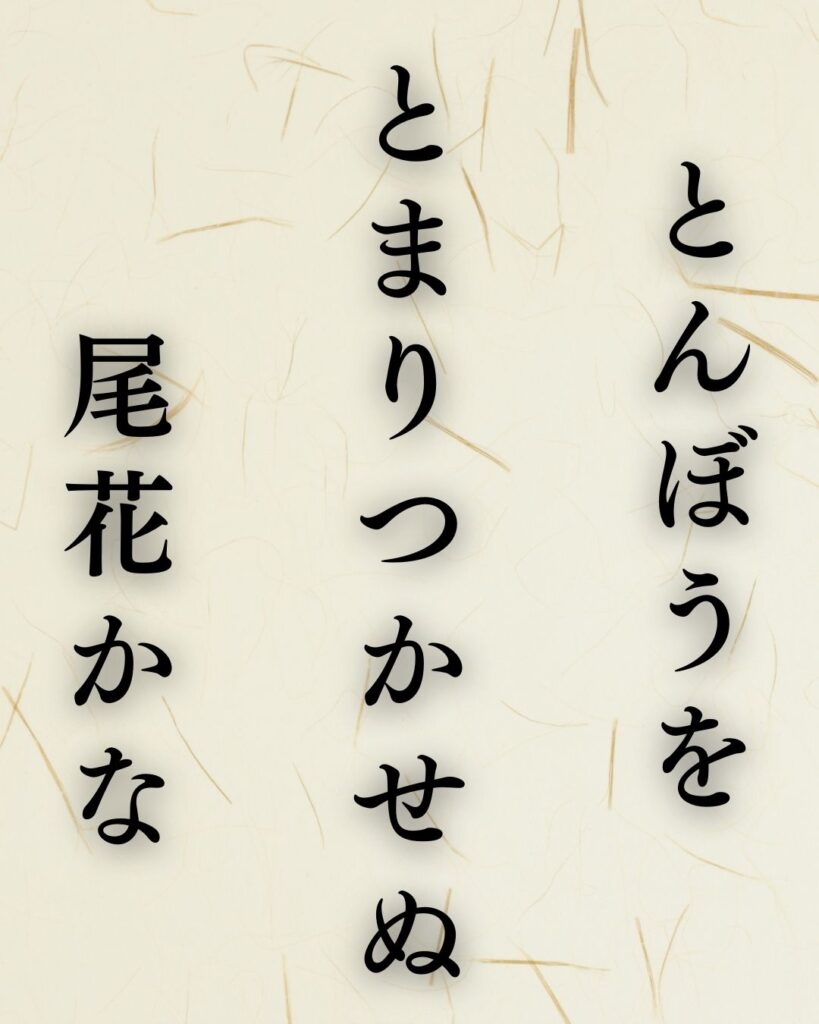 とんぼうを
とまりつかせぬ
尾花かな